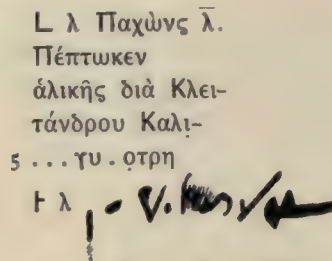 L λ Παχὼνς λ̅.
Πέπτωκεν
ἁλικῆς διὰ Κλει-
τάνδρου Καλι̣-
5 . . . γυ . ο̣τρη
Ⱶ λ